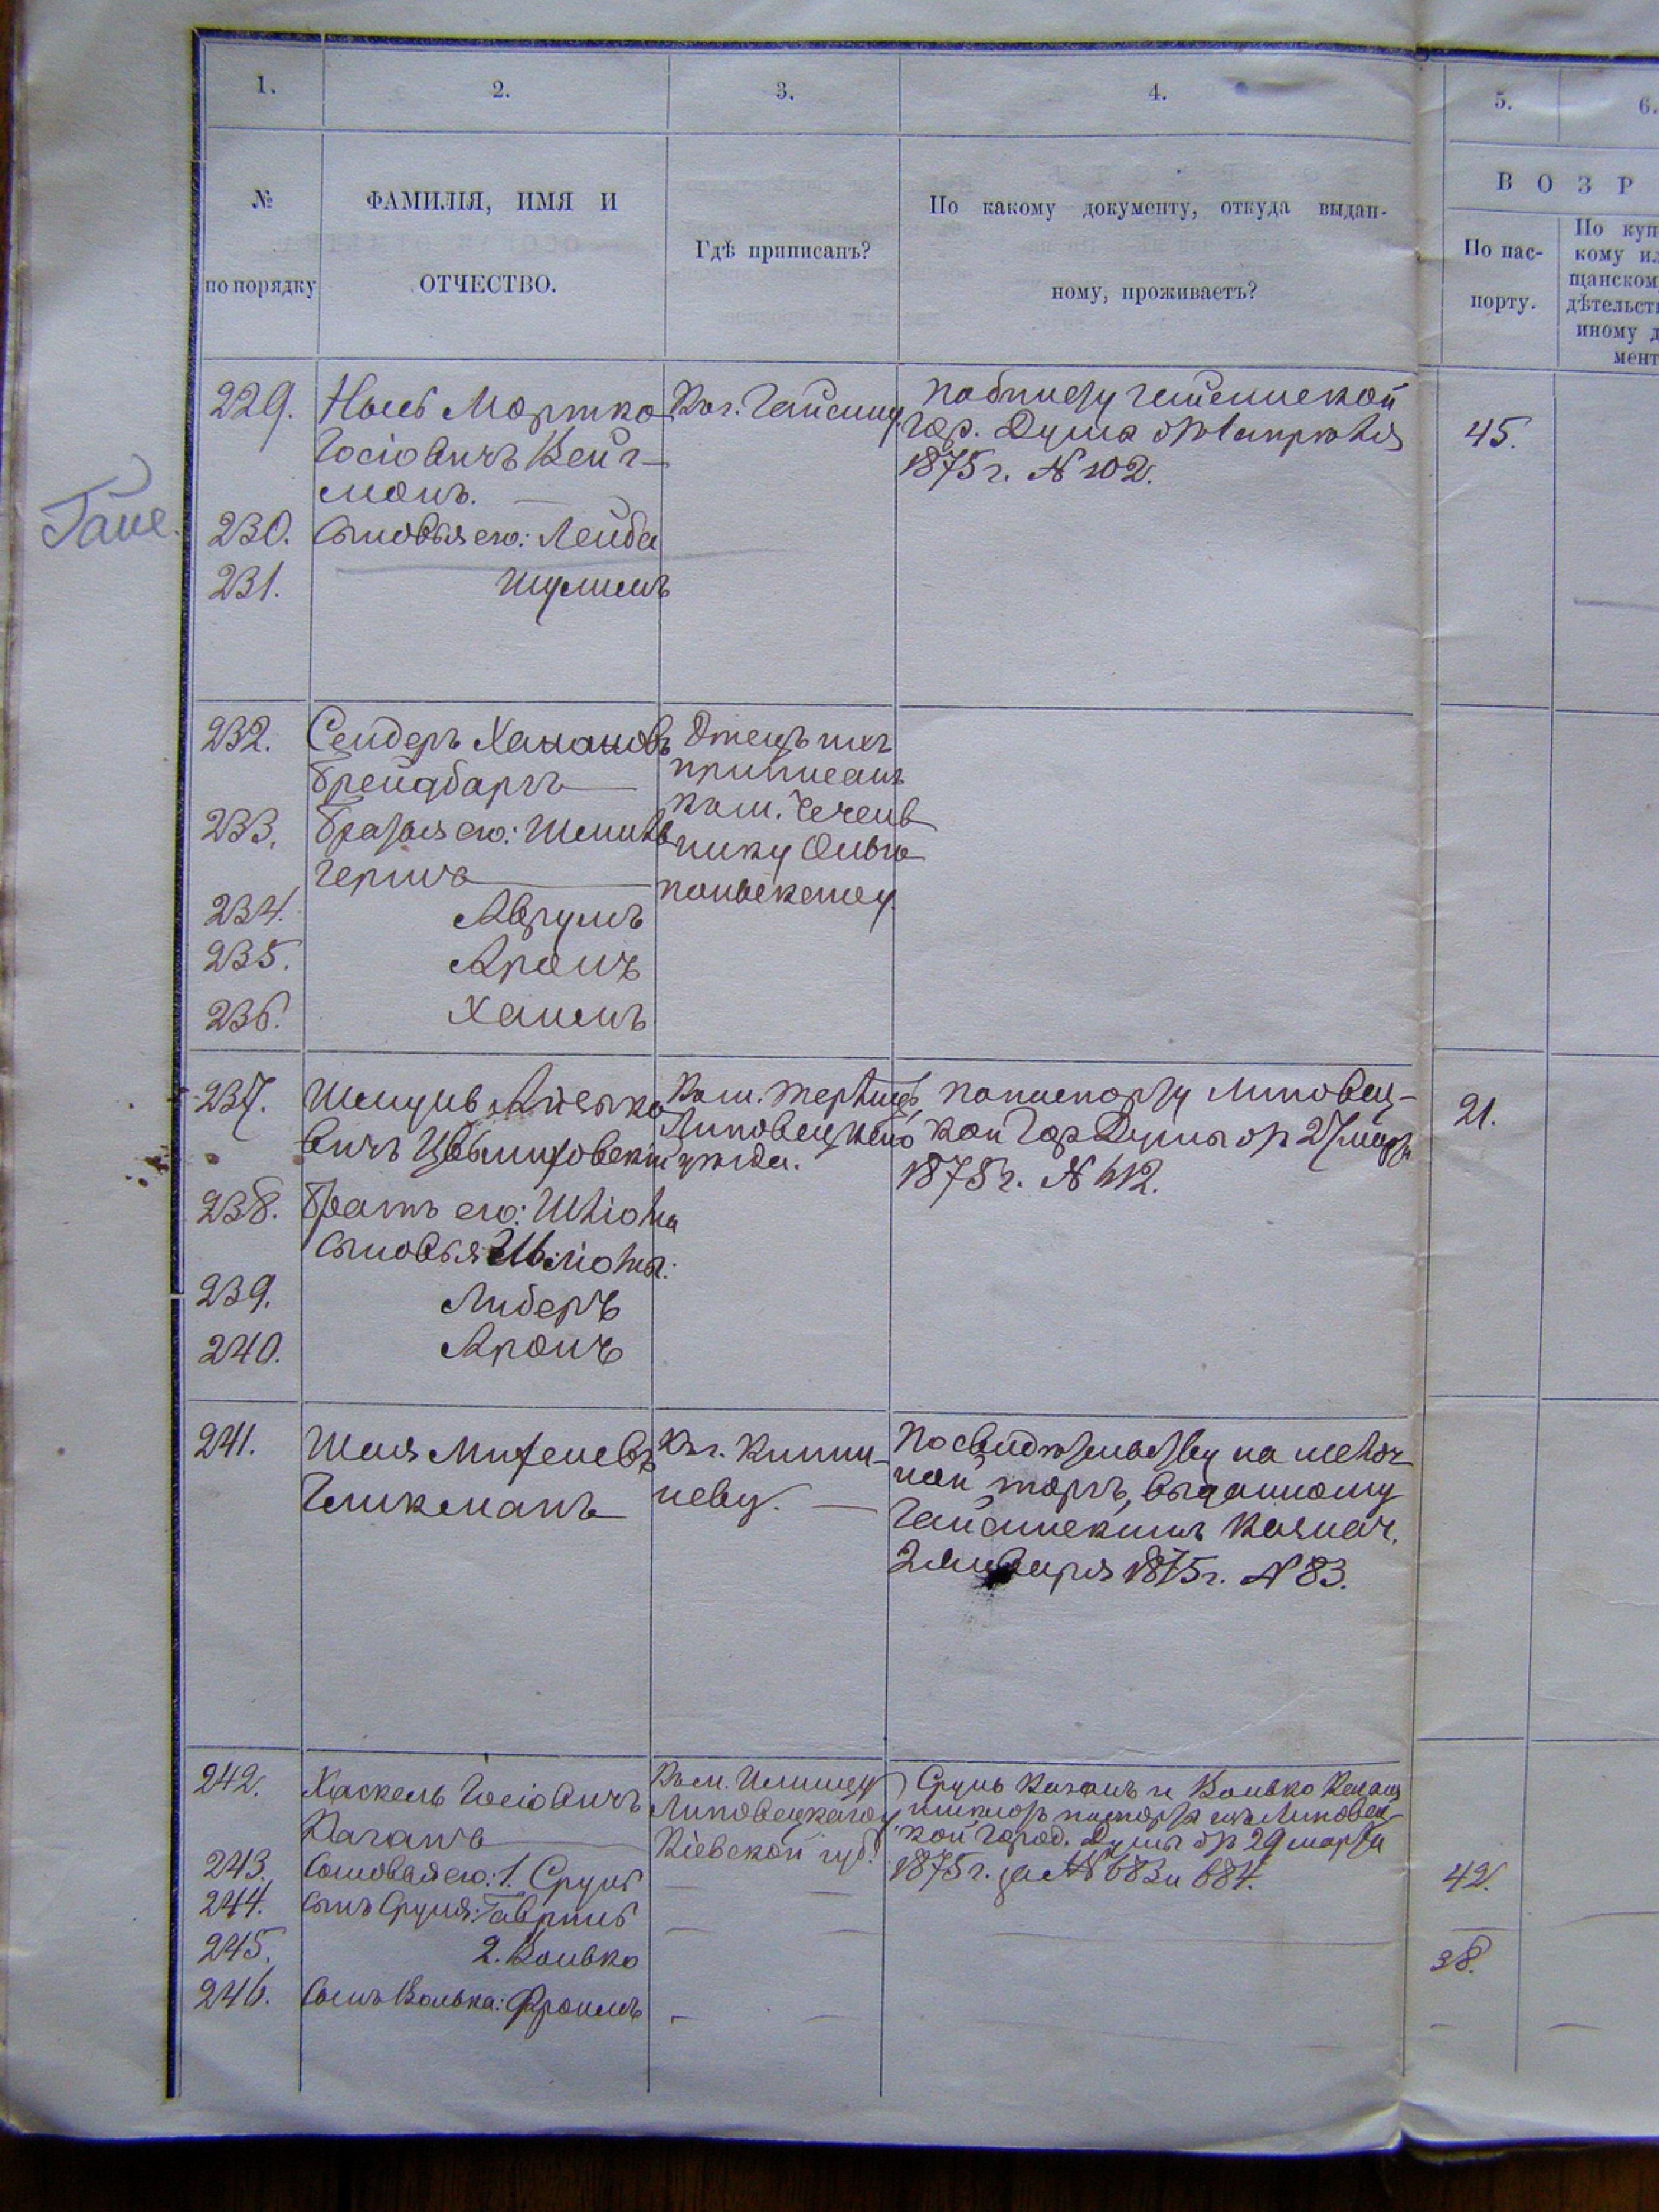 1.
2.
3.
4.
5.
6.
№
по порядку
ФАМИЛІЯ, ИМЯ И
ОТЧЕСТВО.
Гдѣ приписанъ?
По какому документу, откуда выдан-
ному, проживаетъ?
В О З Р
По пас-
порту.
По куп
кому ил
щанском
дѣтельст
иному д
мент
229.
Мортко
Іосіовичъ Вейц-
манъ.
Къ г. Гайсину
Гор. Думы
1875 г. № 102.
45.
230.
Сыновья его: Лейба
231.
Шулимъ
232.
Сендеръ Ханановъ
Брейдбартъ
Отецъ ихъ
приписанъ
къ м. Чечель
нику Ольго
польскому.
233.
Братья его:
Гершъ
234.
Аврумъ
235.
Аронъ
236.
Хаимъ
237.
вичъ
Къ м.
Липовецкаго
уѣзда.
По паспорту Липовец-
кой Гор Думы от 27 марта
1875 г. № 612.
21.
238.
Братъ его: Шліома
Сыновья Шліомы:
239.
Либеръ
240.
Аронъ
241.
Шая
Гликманъ
Къ г. Киши-
неву.
По свидѣтельству на мелоч
ной торгъ, выданному
Гайсинскимъ Казнач.
2 Января 1875 г. № 83.
242.
Хаскель Іосіовичъ
Каганъ
Къ м. Илинец
Липовецкаго у
Кіевской губ.
Сруль Каганъ и Волько Каганъ
имѣютъ паспорта изъ Липовец-
кой Город. Думы от 29 марта
1875 г. за №№ 683 и 684.
243.
Сыновья его: 1. Сруль
42.
244.
Сынъ Сруля: Гаврилъ
245.
2. Волько
38.
246.
Сынъ Волька: Фроимъ